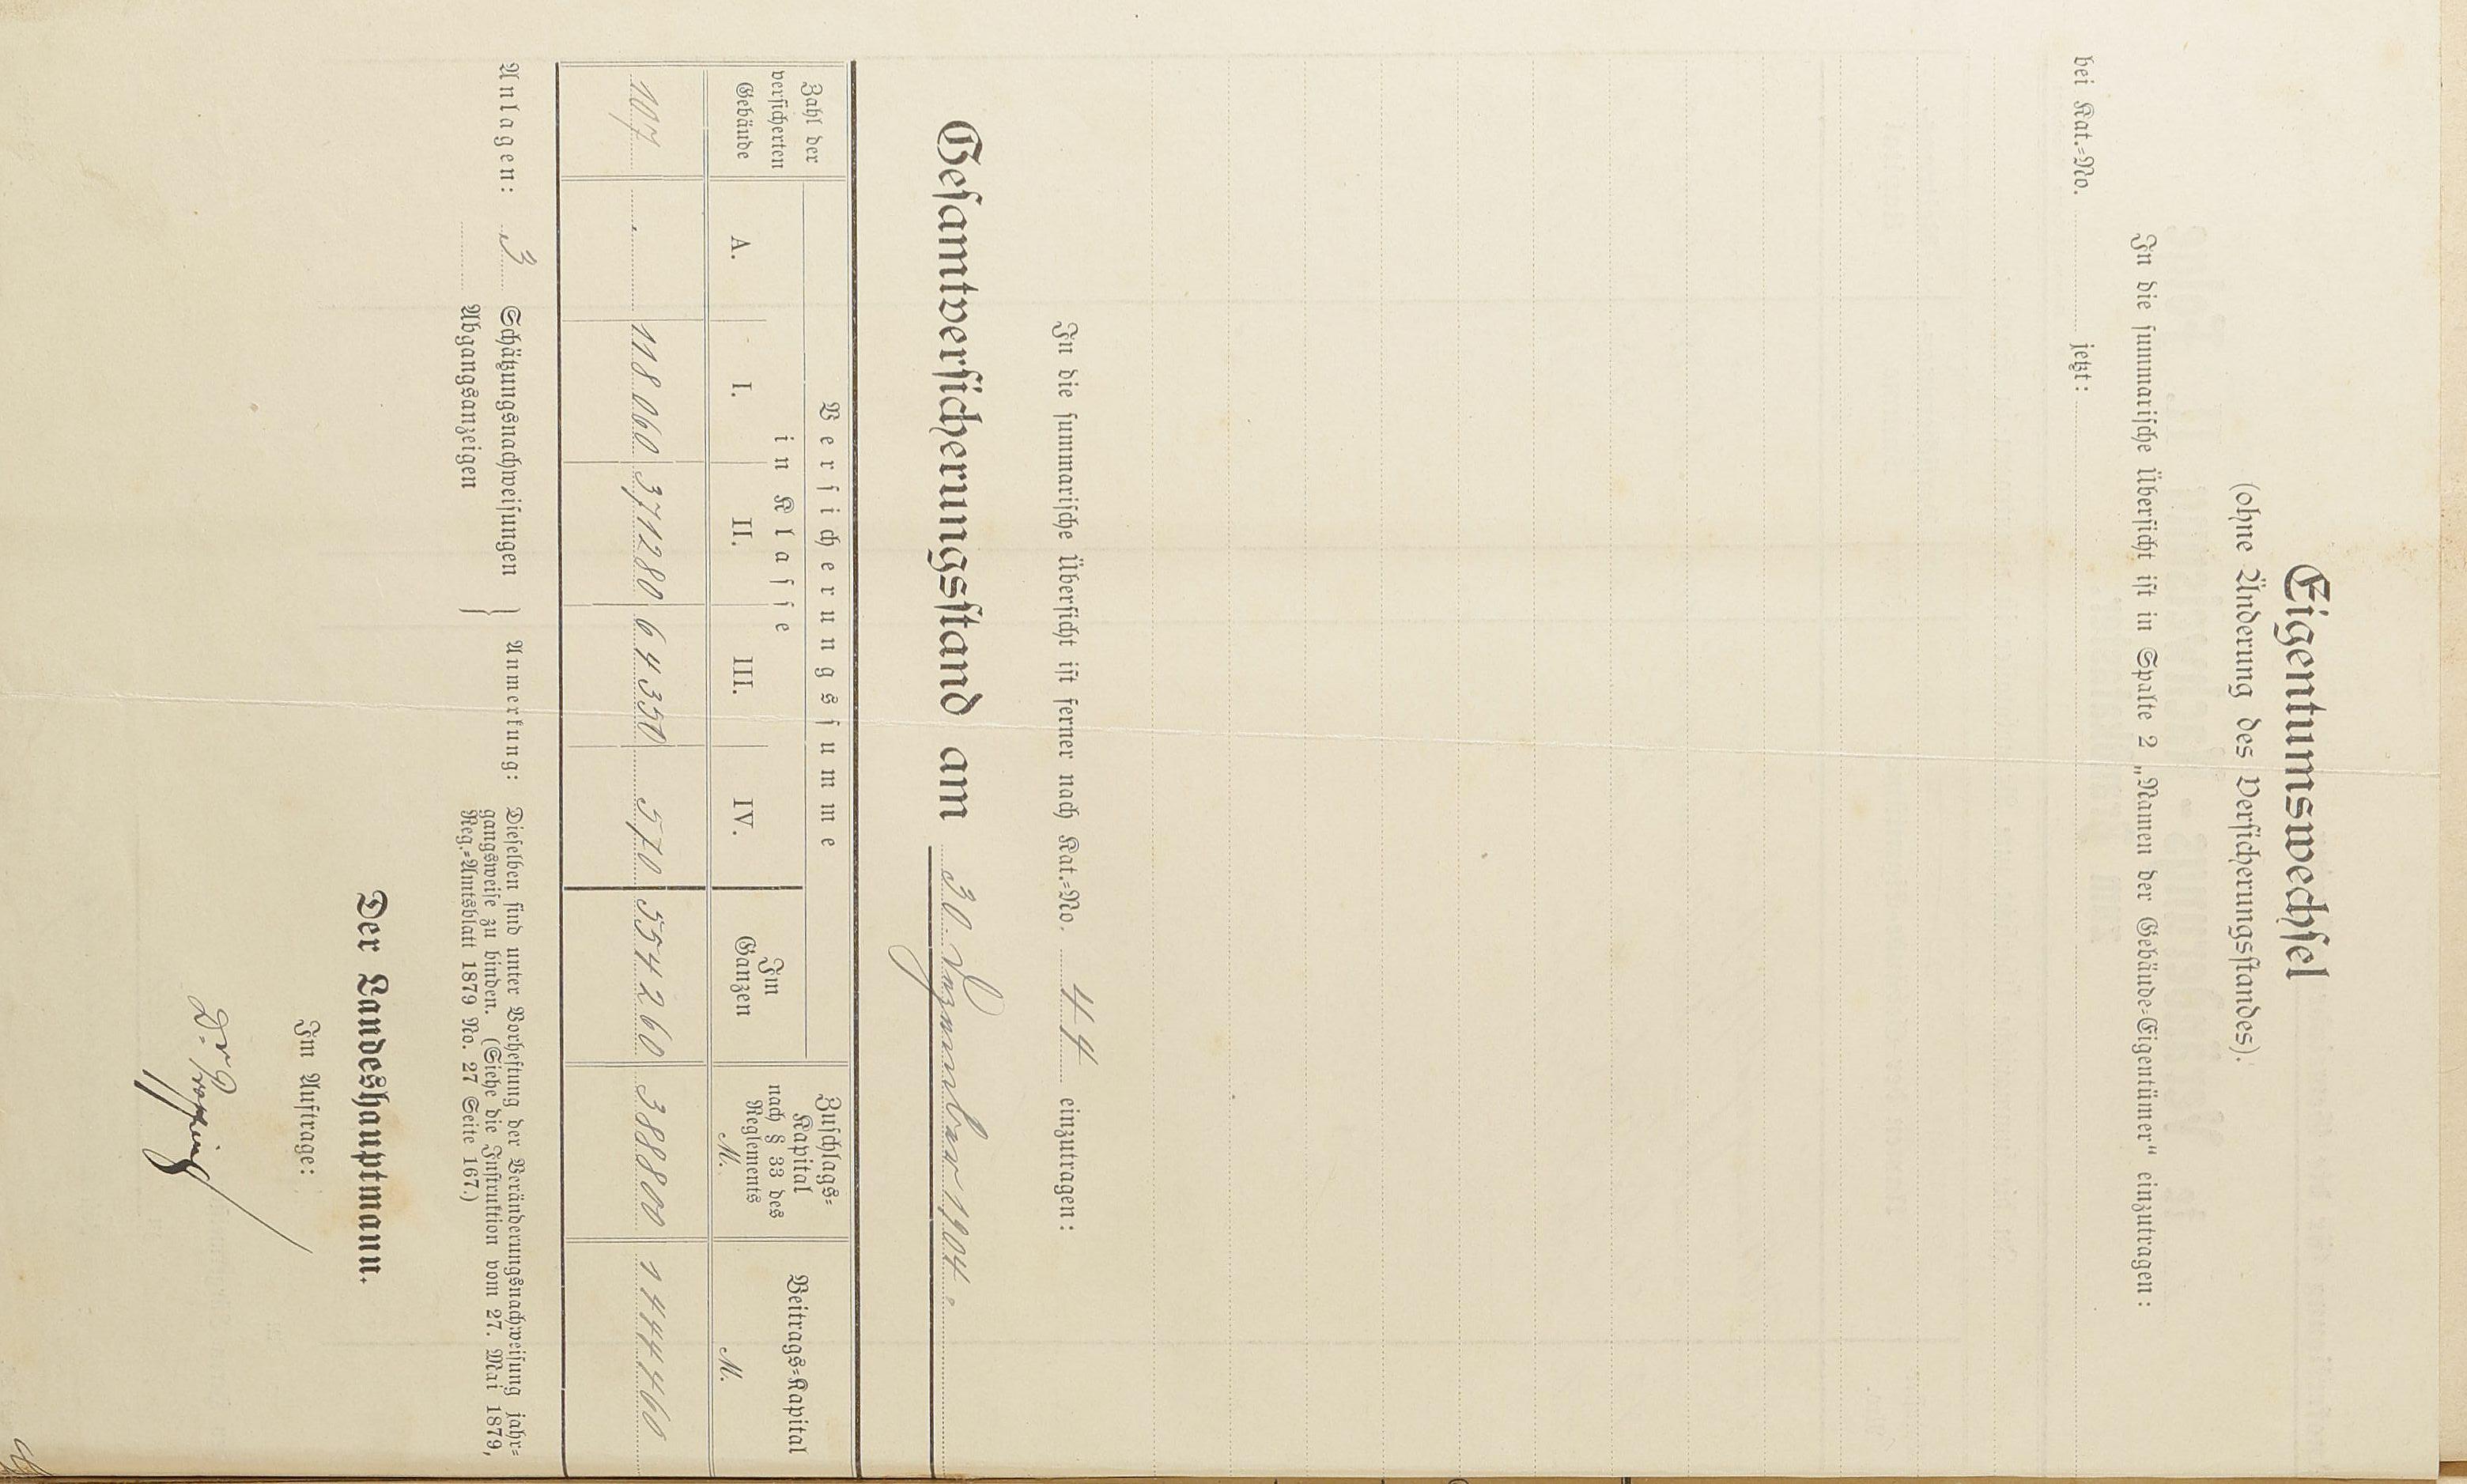 Eigentumswechsel
(ohne Änderung des Versicherungsstandes).
In die summarische Übersicht ist in Spalte 2 „Namen der Gebäude=Eigentümer“ einzutragen:
bei Kat.=No. jetzt:
In die summarische Übersicht ist ferner nach Kat.=No. 44 einzutragen:
Gesamtversicherungsstand am 30. Dezember 1904.
Zahl der versicherten Gebäude
Versicherungssumme
in Klasse
A. I. II. III. IV.
Im Ganzen
Zuschlags=Kapital nach § 33 des Reglements M.
Beitrags=Kapital M.
107 . 118060 371280 64350 570 554260 388800 1444460
Anlagen: 3 Schätzungsnachweisungen
Abgangsanzeigen
Anmerkung: Dieselben sind unter Vorheftung der Veränderungsnachweisung jahr=
gangsweise zu binden. (Siehe die Instruktion vom 27. Mai 1879,
Reg.=Amtsblatt 1879 No. 27 Seite 167.)
Der Landeshauptmann.
Im Auftrage: